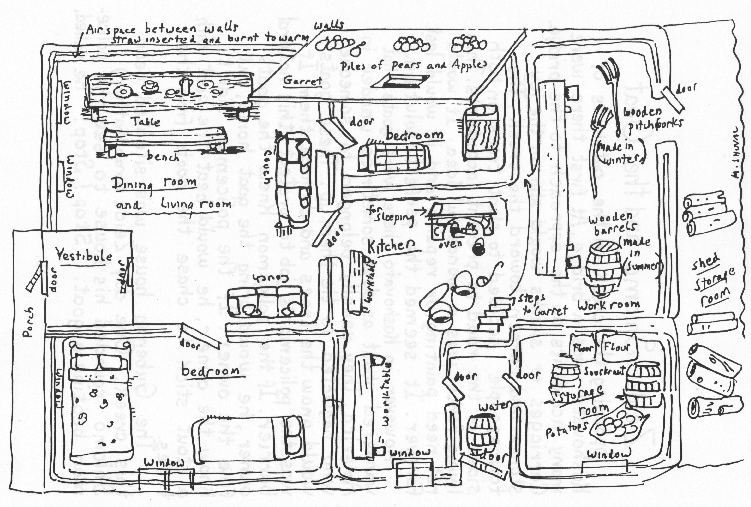 Air space between walls
straw inserted and burnt to warm walls
Garret
Piles of Pears and Apples
door
window
Table
bench
window
Dining room
and Living room
couch
door
bedroom
Wooden
pitchforks
(made in
winter)
door
for
sleeping
oven
Kitchen
door
worktable
Wooden
barrels
(made
in
summer)
Workroom
shed
storage
room
Vestibule
door
door
Porch
couch
steps
to Garret
door
bedroom
window
window
worktable
window
door
door
Water
door
Flour
Flour
Sourkraut
storage
room
Potatoes
window